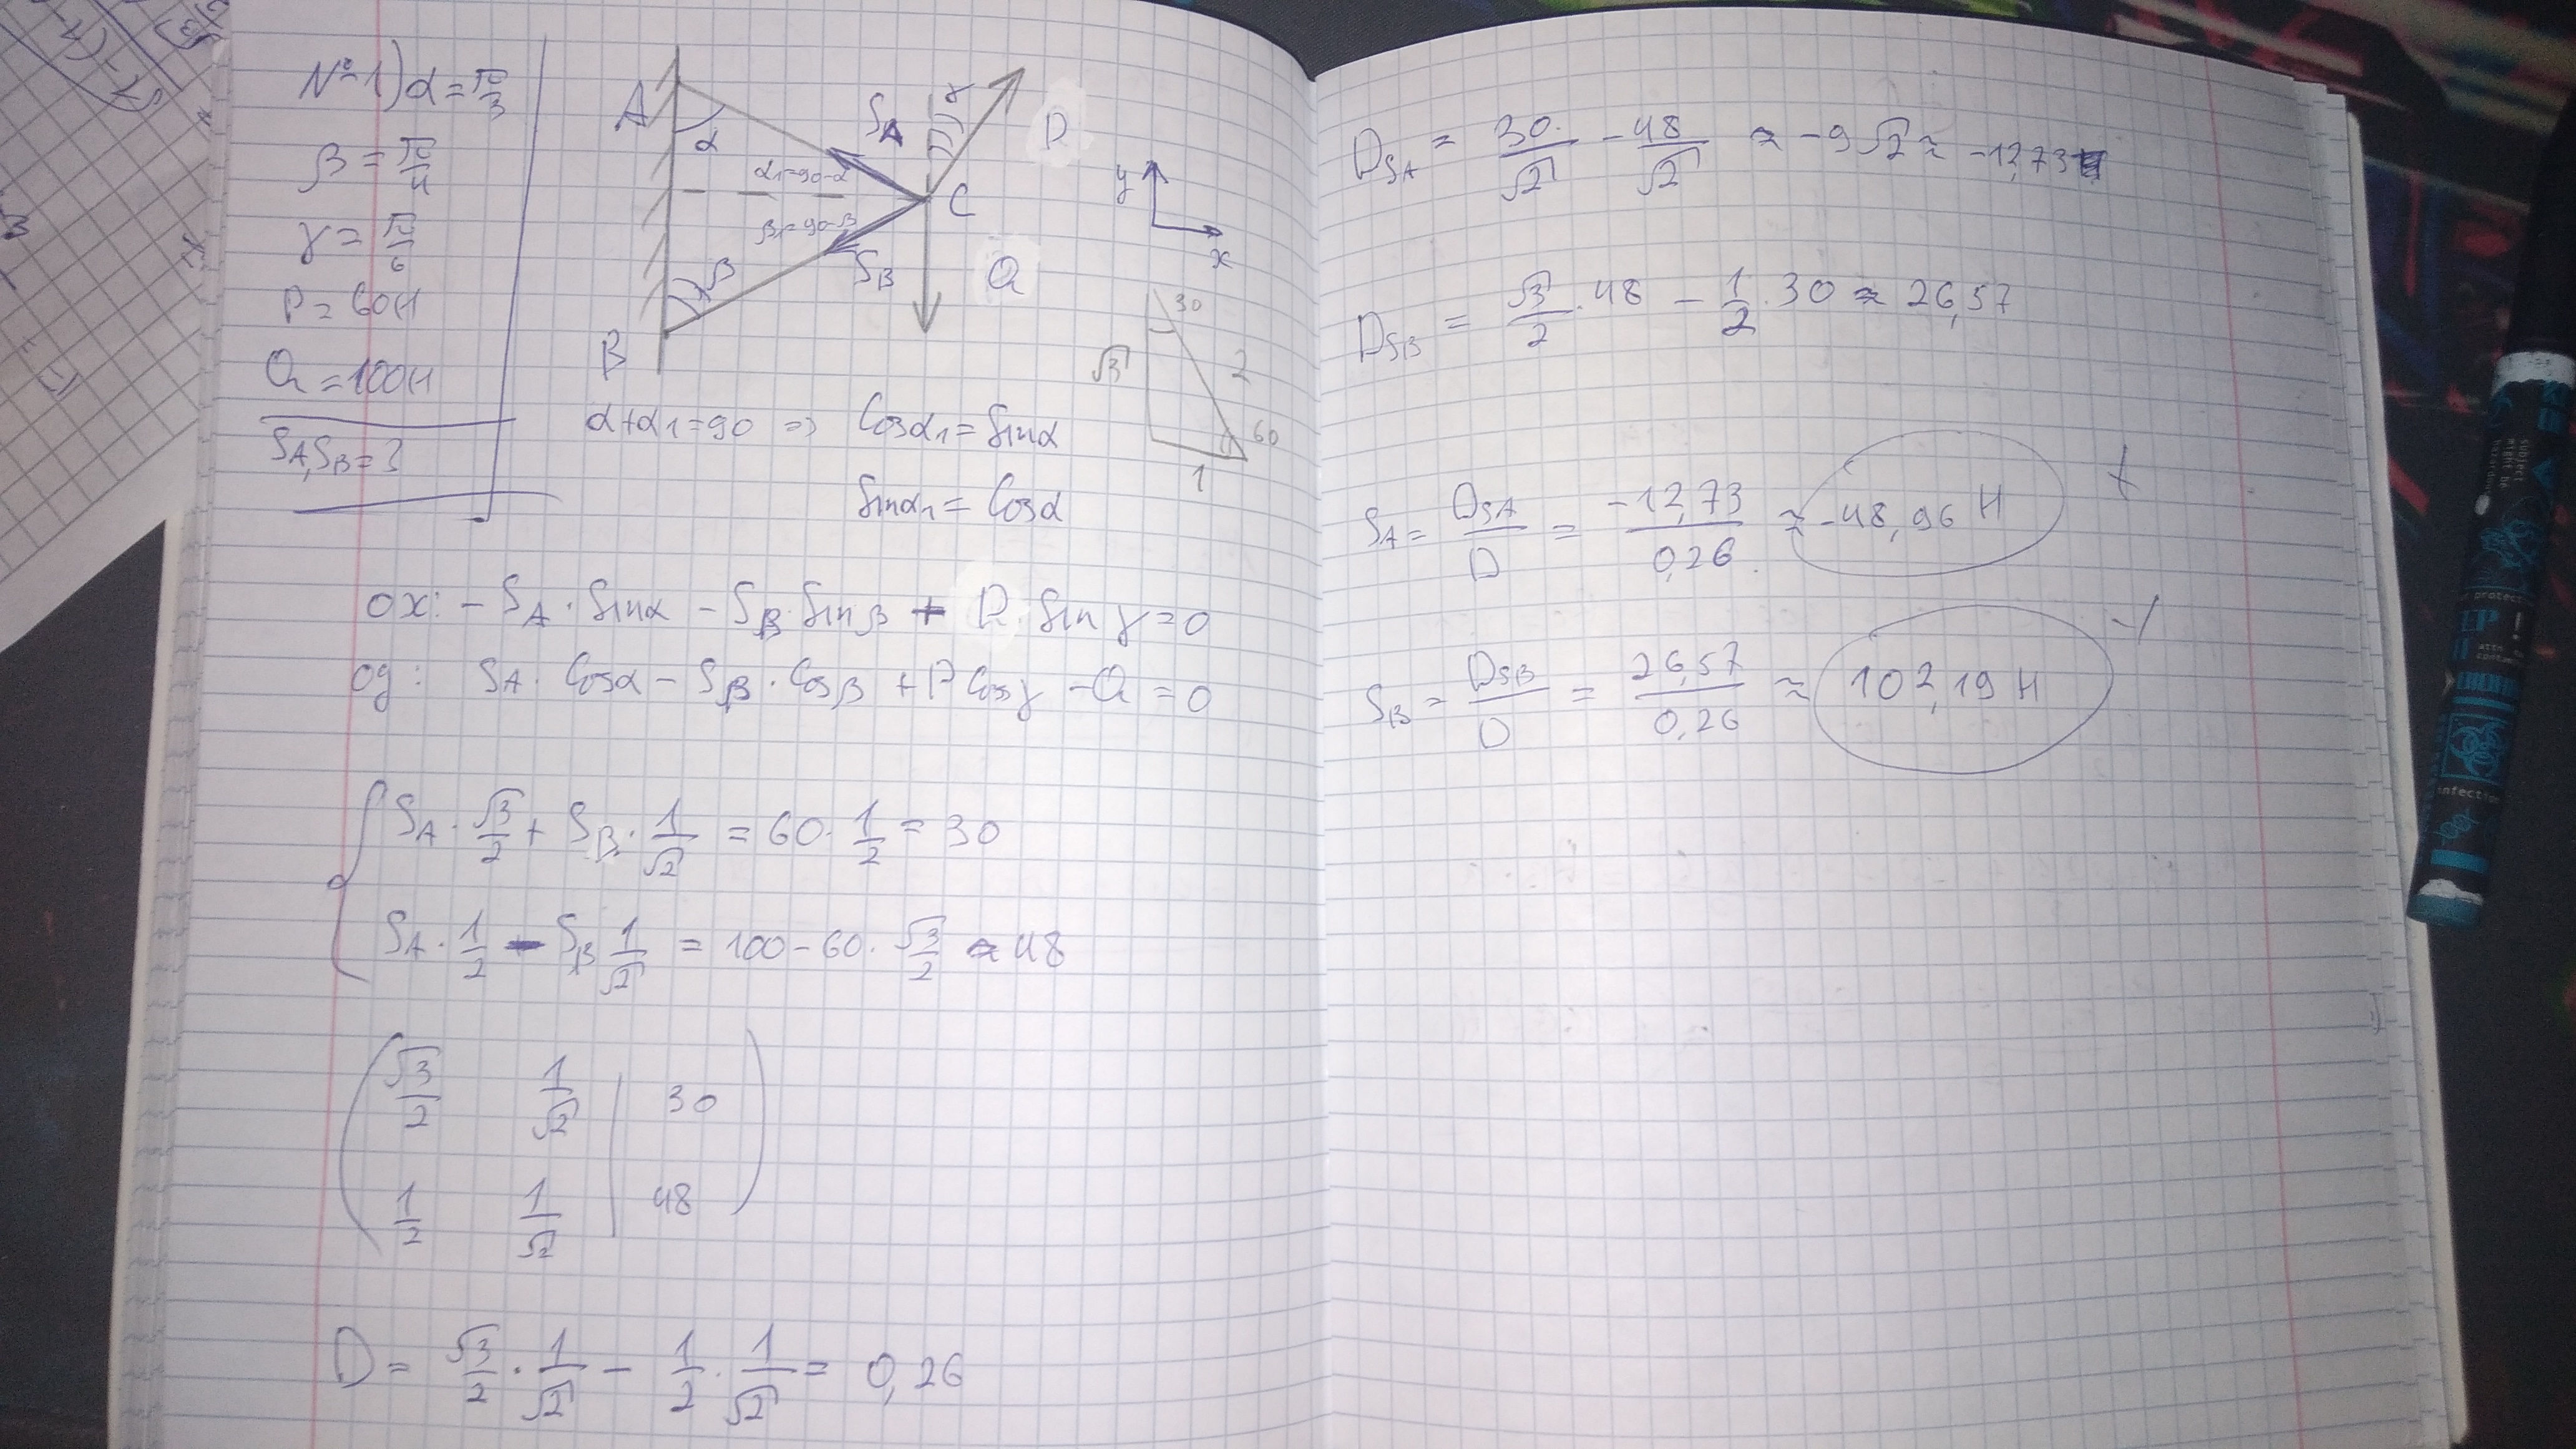 №1) α = π/3
β = π/4
γ = π/6
P = 60H
Q = 100H
SA, SB = ?
A
α
SA
γ
P
α1=90-α
C
β1=90-β
β
SB
Q
B
y
x
30
√3
2
60
1
α+α1=90 => Cosα1 = Sinα
Sinα1 = Cosα
ox: - SA · Sinα - SB · Sinβ + P · Sin γ = 0
oy: SA · Cosα - SB · Cosβ + P Cosγ - Q = 0
SA · √3/2 + SB · 1/√2 = 60 · 1/2 = 30
SA · 1/2 - SB 1/√2 = 100 - 60 · √3/2 ≈ 48
√3/2 1/√2 | 30
1/2 1/√2 | 48
D = √3/2 · 1/√2 - 1/2 · 1/√2 = 0,26
DSA = 30/√2 - 48/√2 ≈ -9√2 ≈ -12,73
DSB = √3/2 · 48 - 1/2 · 30 ≈ 26,57
SA = DSA/D = -12,73/0,26 ≈ -48,96 H
SB = DSB/D = 26,57/0,26 ≈ 102,19 H